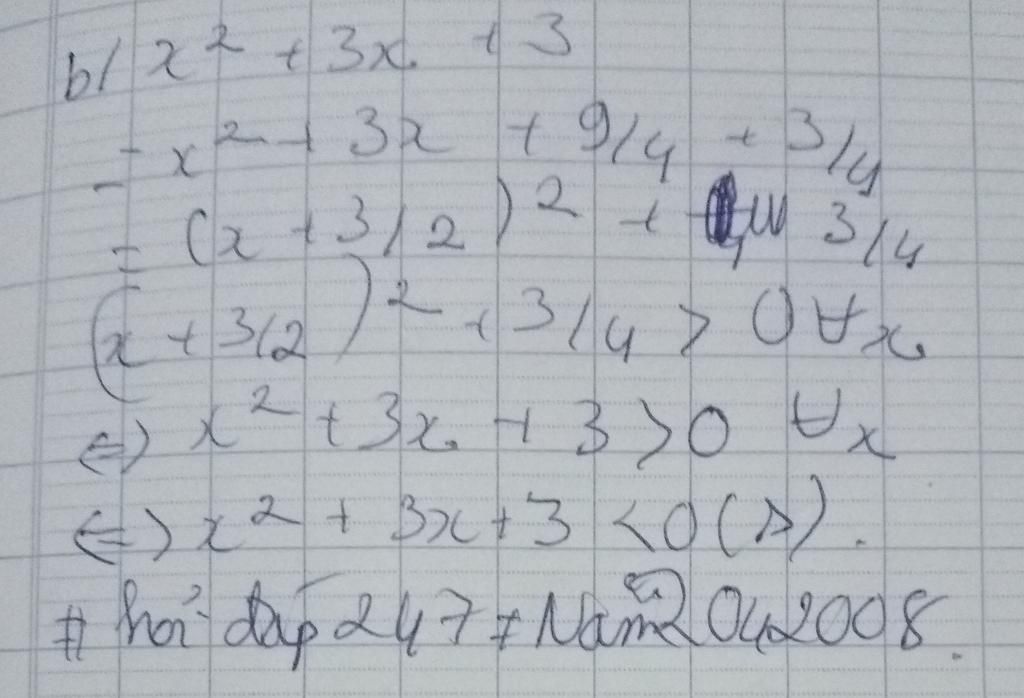 b/ x² + 3x + 3
= x² + 3x + 9/4 + 3/4
= (x + 3/2)² + 3/4
(x + 3/2)² + 3/4 > 0 ∀x
⇔ x² + 3x + 3 > 0 ∀x
⇔ x² + 3x + 3 < 0 (
# hỏi đáp 247 # Nam2042008.